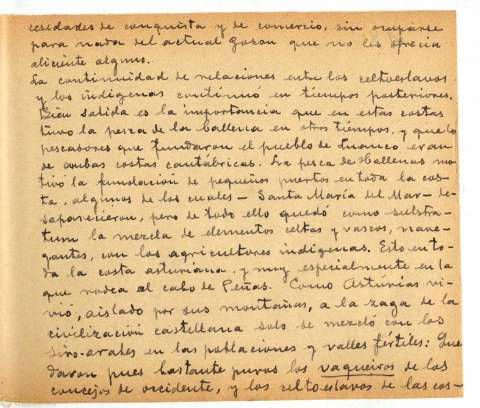 cesidades de conquista y de comercio, sin ocuparse
para nada del actual Gozon que no les ofrecia
aliciente alguno.
La continuidad de relaciones entre los celtoeslavos
y los indigenas continuó en tiempos posteriores.
Bien sabida es la importancia que en estas costas
tuvo la pesca de la ballena en otros tiempos, y que los
pescadores que fundaron el pueblo de Luanco eran
de ambas costas cantábricas. La pesca de ballenas mo-
tivó la fundación de pequeños puertos en toda la cos-
ta, algunos de los cuales - Santa María del Mar - de-
saparecieron, pero de todo ello quedó como substra-
tum la mezcla de elementos celtas y vascos, nave-
gantes, con los agricultores indigenas. Esto en to-
da la costa asturiana, y muy especialmente en la
que rodea al cabo de Peñas. Como Asturias vi-
vió, aislado por sus montañas, a la zaga de la
civilización castellana solo se mezcló con los
siro-arabes en las poblaciones y valles fértiles: Que-
daron pues bastante puros los vaqueiros de los
concejos de occidente, y los celtoeslavos de las cos-